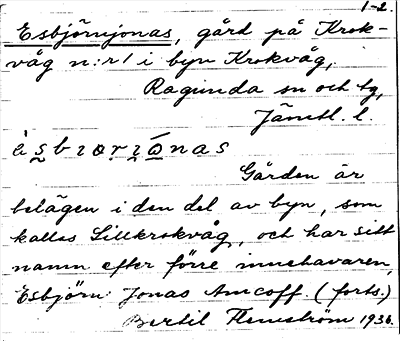 1-2.
Esbjörnjonas, gård på Krok-
våg n:r 1 i byn Krokvåg,
Ragunda sn och tg,
Jämtl. l.
Gården är
belägen i den del av byn, som
kallas Lillkrokvåg, och har sitt
namn efter förre innehavaren,
Esbjörn Jonas Amcoff. (forts.)
Bertil Flemström 1936.